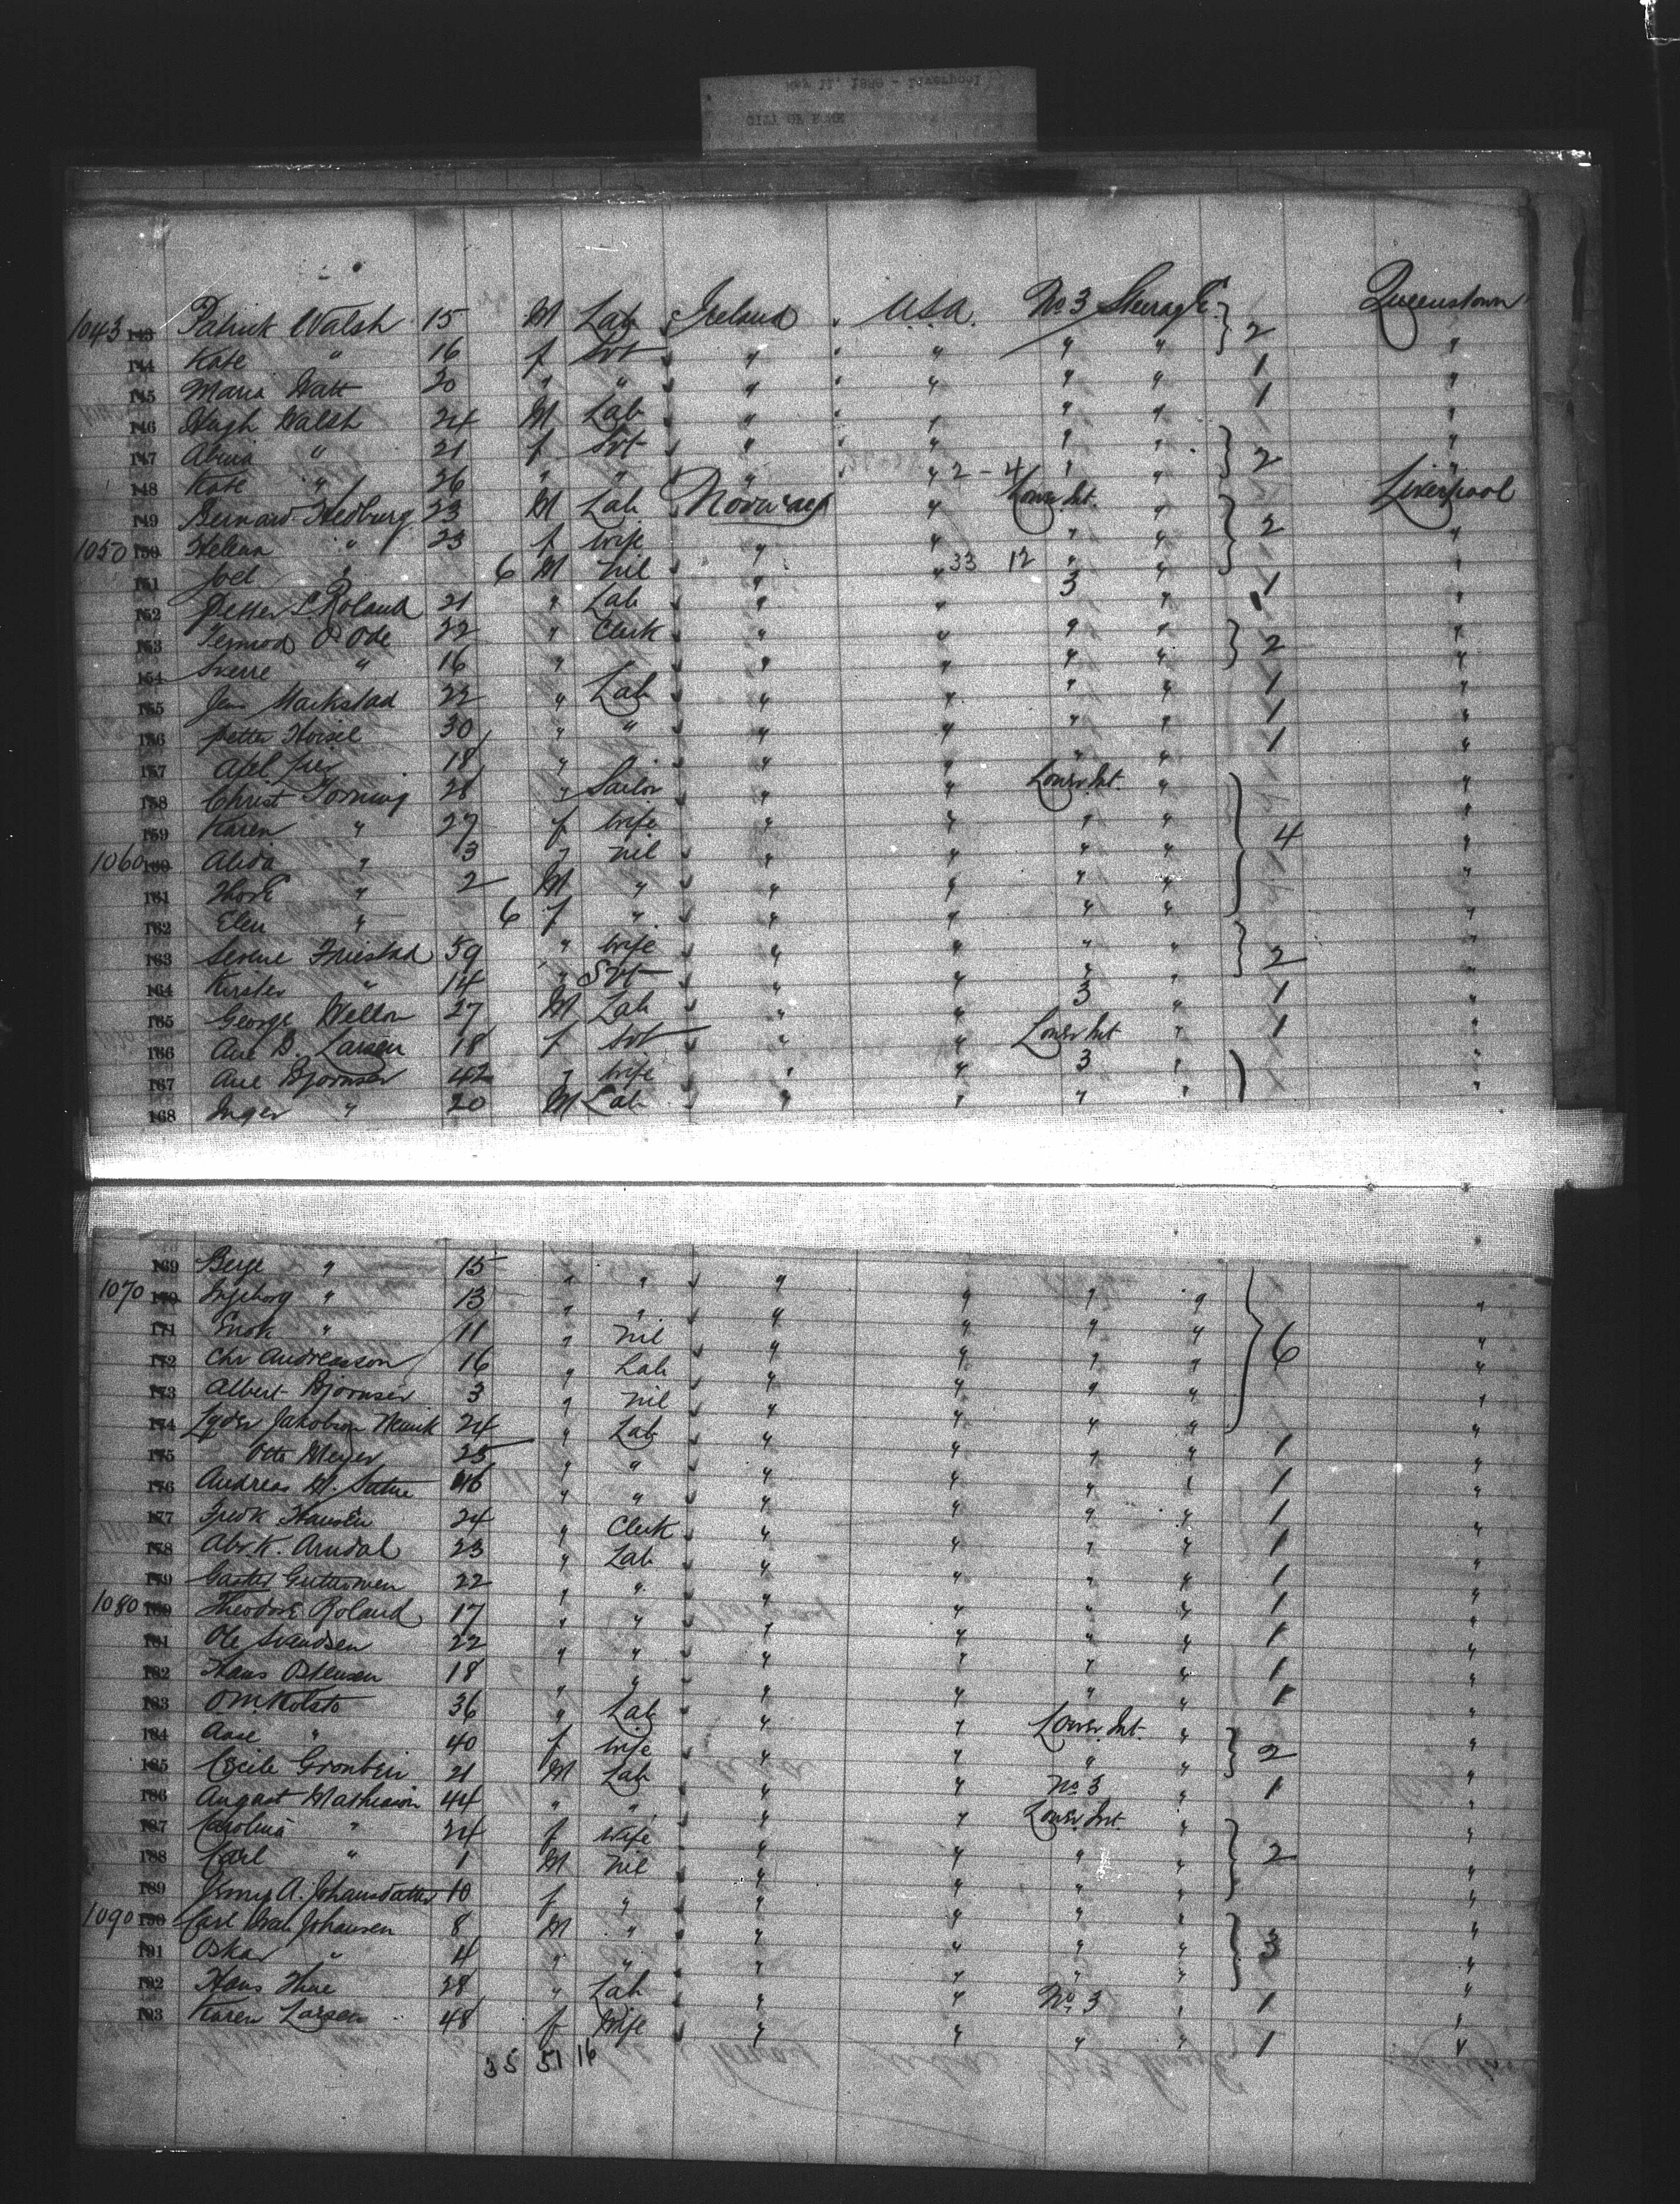 CITY OF ROME
May 11, 1886 - Liverpool
1043 143 Patrick Walsh 15 M Lab Ireland U.S.A. No 3 Steerage 2 Queenstown
144 Kate " 16 f Svt " " " " "
145 Maria Watt 20 " " " " " " 1 "
146 Hugh Walsh 24 M Lab " " " " 1 "
147 " 21 f Svt " " " " 2 "
148 Kate " 26 " " " " 2-4 " " "
149 Bernard Hedburg 23 M Lab Norway " Lower Int. " 2 Liverpool
1050 150 Helena " 23 f wife " " " " "
151 Joel " 6 M nil " " 33 12 " " "
152 Petter Roland 21 " Lab " " 3 " 1 "
153 O Ode 22 " Clerk " " " " 2 "
154 Sverre " 16 " " " " " "
155 Jens 22 " Lab " " " " 1 "
156 Petter 30 " " " " " " 1 "
157 18 " " " " " 1 "
158 Christ Torning 28 " Sailor " " Lower Int. " 4 "
159 Karen " 27 f wife " " " " "
1060 160 Alida " 3 " nil " " " " "
161 " 2 M " " " " " "
162 Elen " 6 f " " " " " "
163 Serine Friestad 59 " wife " " " " 2 "
164 Kirsten " 14 " Svt " " " " "
165 George 27 M Lab " " 3 " 1 "
166 Ane B. Larsen 18 f Svt " " Lower Int " 1 "
167 Ane Bjornsen 42 " wife " " 3 " "
168 Inger " 20 M Lab " " " " "
169 Berge " 15 " " " " " " 6 "
1070 170 Ingeborg " 13 " " " " " " "
171 Enok " 11 " nil " " " " "
172 Chr Andreasson 16 " Lab " " " " "
173 Albert Bjornsen 3 " nil " " " " "
174 Jakobsen 24 " Lab " " " " 1 "
175 Otto Meyer 25 " " " " " " 1 "
176 Andreas M. 46 " " " " " " 1 "
177 Fredk Hansen 24 " Clerk " " " " 1 "
178 Abr. K. Arndal 23 " Lab " " " " 1 "
179 22 " " " " " " 1 "
1080 180 Theodore Roland 17 " " " " " " 1 "
181 Ole Svendsen 22 " " " " " " 1 "
182 Hans Ostensen 18 " " " " " " 1 "
183 O.M. Kolsto 36 " Lab " " Lower Int. " 2 "
184 Aase " 40 f wife " " " " "
185 Cecile 21 M Lab " " No 3 " 1 "
186 August Mathiason 44 " " " " Lower Int. " 2 "
187 Carolina " 24 f Wife " " " " "
188 Carl " 1 M nil " " " " "
189 Jenny A. Johansdatter 10 f " " " " " 3 "
1090 190 Carl Johansen 8 M " " " " " "
191 Oskar " 4 " " " " " " "
192 Hans 28 " Lab " " No 3 " 1 "
193 Karen Larsen 48 f Wife " " " " 1 "
35 51 16